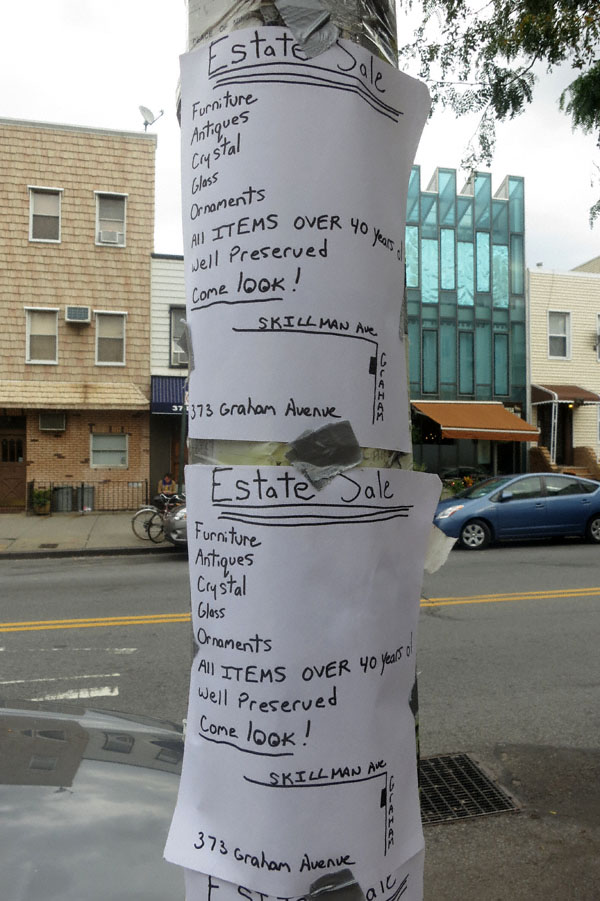 Estate Sale
Furniture
Antiques
Crystal
Glass
Ornaments
All ITEMS OVER 40 years ol
Well Preserved
Come look!
SKILLMAN Ave
GRAHAM
373 Graham Avenue
37
Estate Sale
Furniture
Antiques
Crystal
Glass
Ornaments
All ITEMS OVER 40 years ol
Well Preserved
Come look!
SKILLMAN Ave
GRAHAM
373 Graham Avenue